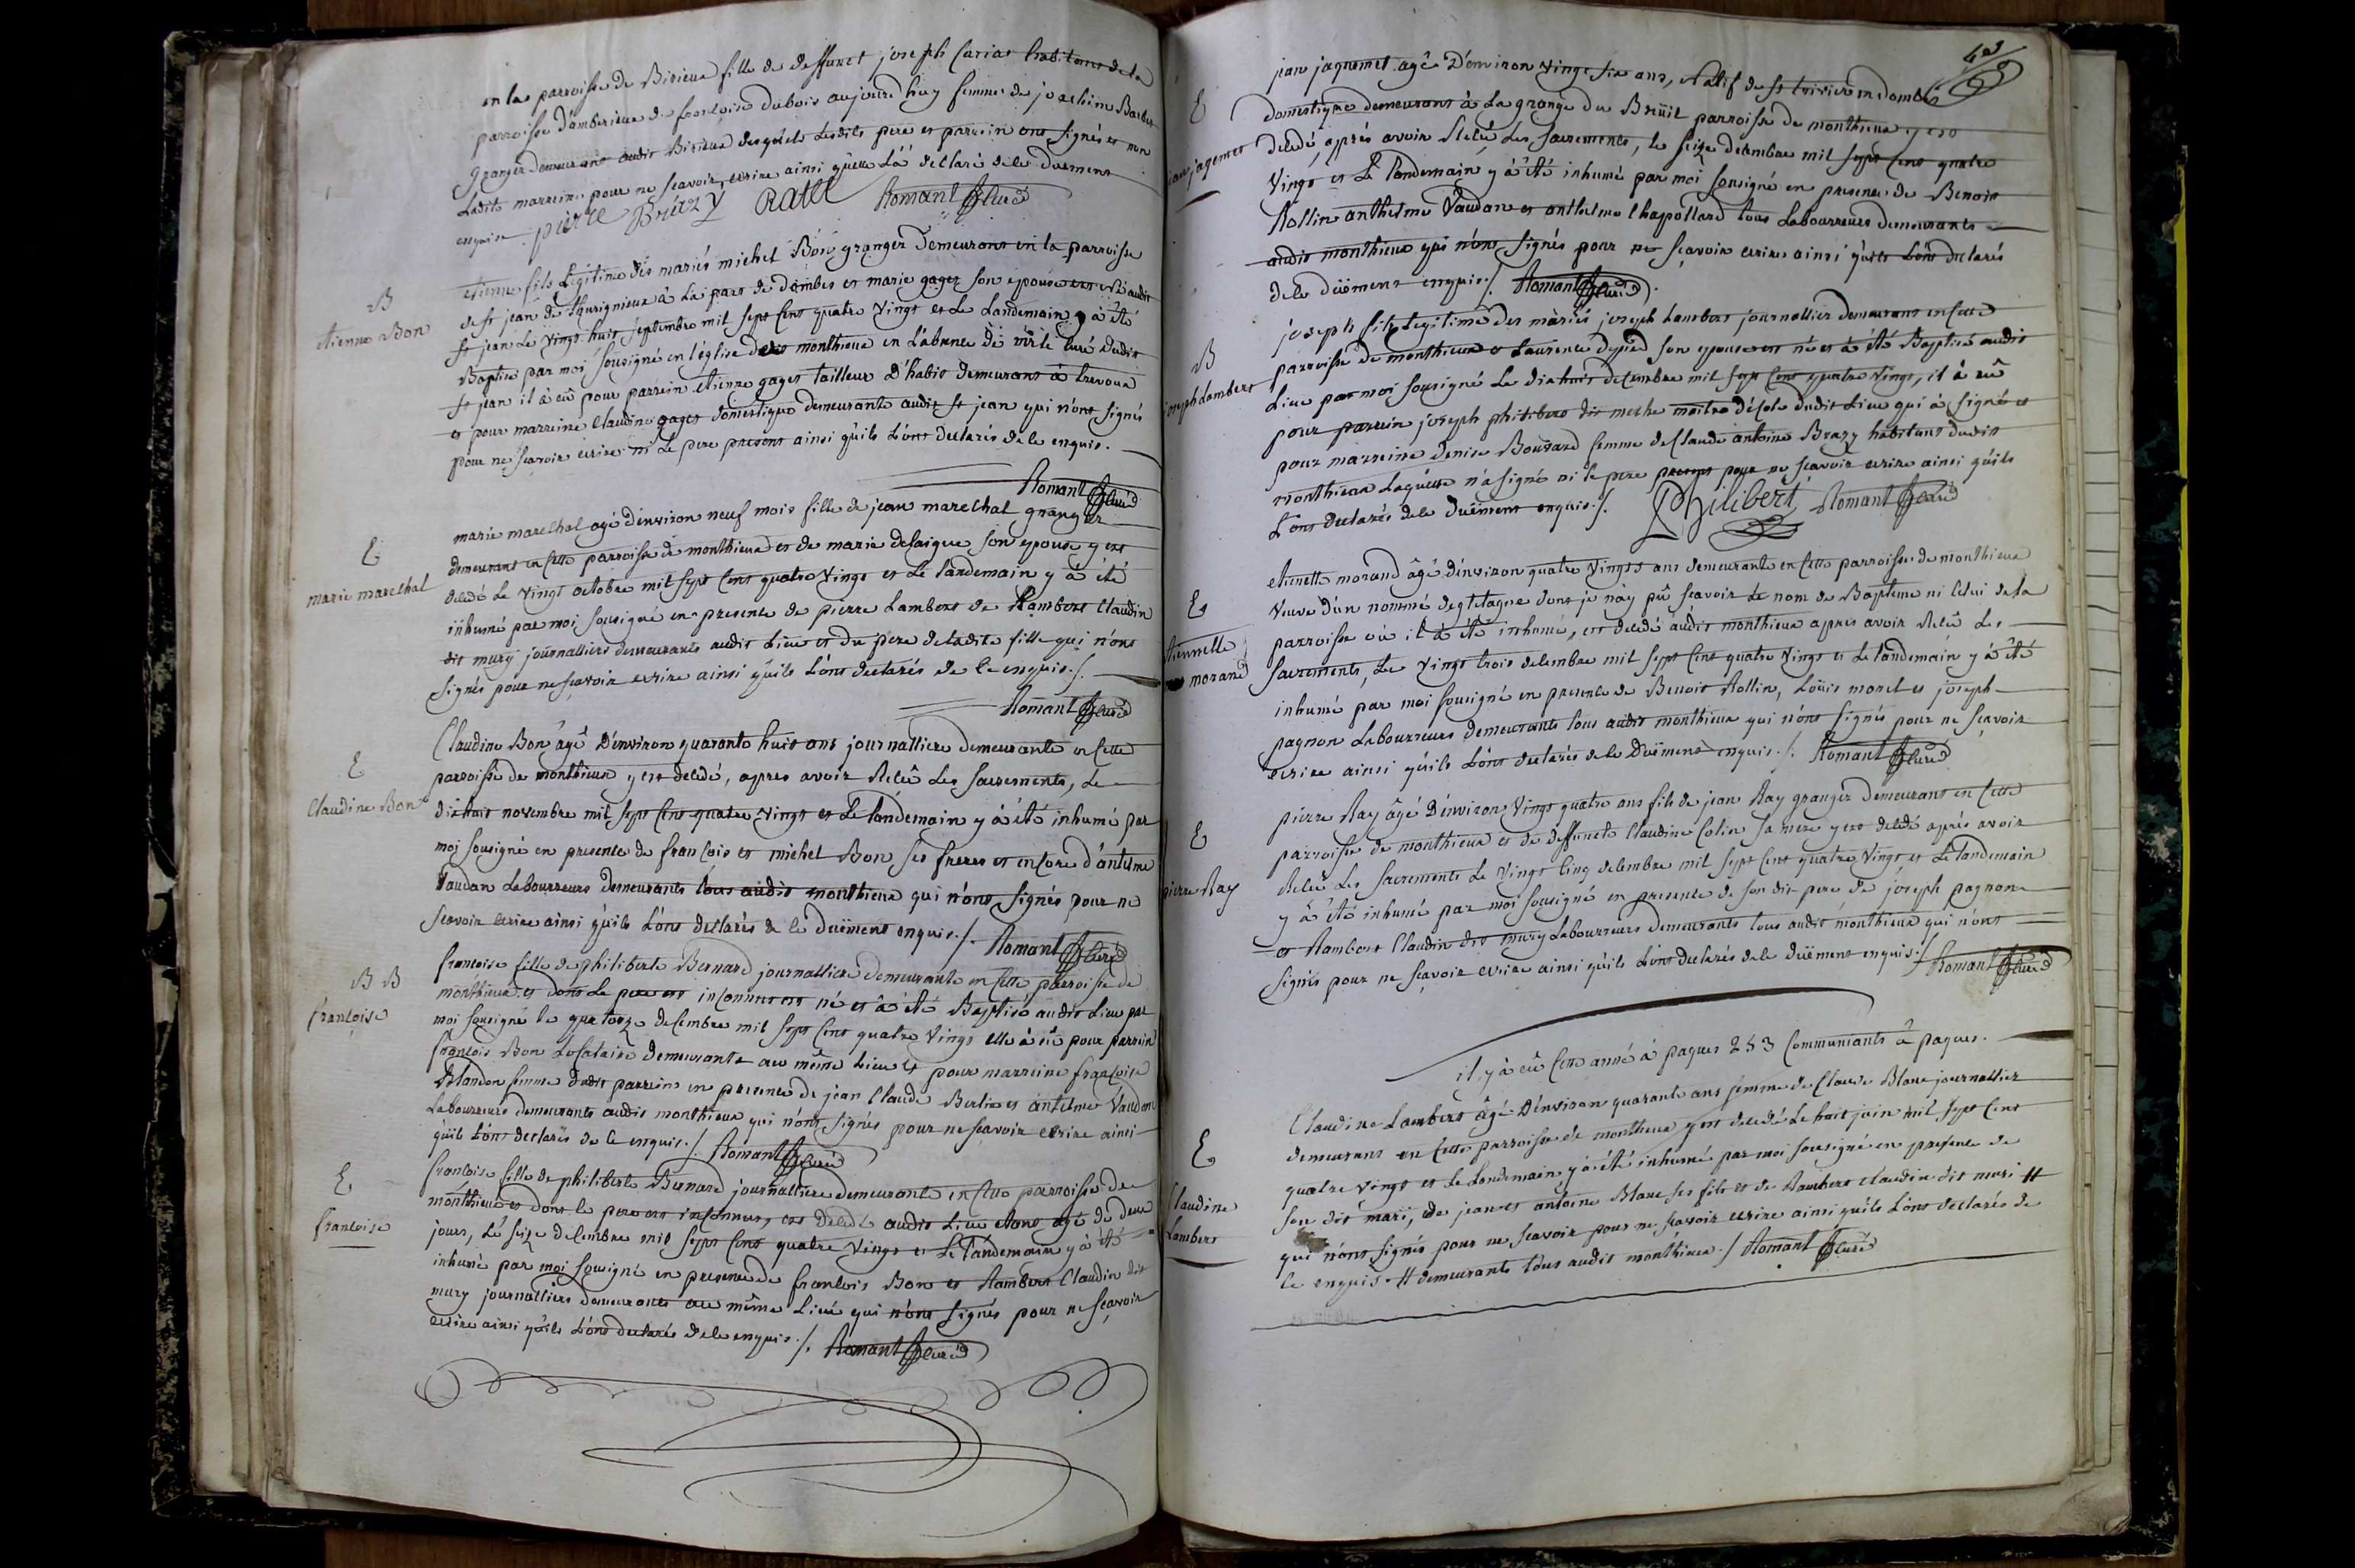 en la parroisse de Birieux fille de deffunct joseph Cariat habitant de la
parroisse d'amberieux de francoise dubois aujourd'huy femme de joachim Barbet
granger demeurant audit Birieux desquels lesdits pere et parrein ont signés et non
ladite marreine pour ne scavoir ecrire ainsi quelle l'a declaré de ce duement
enquise. pierre Brazy Ratel Romant Curé
B
Etienne Bon
etienne fils Légitime des mariés michel Bon granger demeurant en la parroisse
de st jean de thurignieux à La part de dombes et marie gages son epouse est né audit
st jean le vingt huit septembre mil sept Cent quatre vingt et Le Landemain y à été
Baptisé par moi sousigné en l'église de monthieux en l'absence de mr le Curé dudit
st jean il à eû pour parrein etienne gages tailleur d'habit demeurant à trevoux
et pour marreine Claudine gages domestique demeurante audit st jean qui n'ont signés
pour ne scavoir ecrire ni Le pere present ainsi quils L'ont declarés de ce enquis.
Romant Curé
E
marie marechal
marie marechal agé d'environ neuf mois fille de jean marechal granger
demeurant en Cette parroisse de monthieux et de marie desaigue son epouse y est
decedé Le vingt octobre mil sept Cent quatre vingt et Le landemain y à été
inhumé par moi sousigné en presence de pierre Lambert de Rambert Claudin
dit mury journalliers demeurants audit Lieu et du pere de ladite fille qui n'ont
signés pour ne scavoir ecrire ainsi quils L'ont declarés de ce enquis ./.
Romant Curé
E
Claudine Bon
Claudine Bon âgé d'environ quarante huit ans journalliere demeurante en Cette
parroisse de monthieux y est decedé, apres avoir Recû Les sacrements, Le
dixhuit novembre mil sept Cent quatre vingt et Le landemain y à été inhumé par
moi sousigné en presence de francois et michel Bon ses freres et encore d'antelme
Vaudan Laboureurs demeurants tous audit monthieux qui n'ont signés pour ne
scavoir ecrire ainsi quils L'ont declarés de ce duëment enquis ./. Romant Curé
B B
françoise
francoise fille de philiberte Bernard journalliere demeurante en Cette parroisse de
monthieux et dont Le pere est inconnu est né et à été Baptisé audit Lieu par
moi sousigné le quatorze decembre mil sept Cent quatre vingt elle à eû pour parrein
françois Bon Locataire demeurante au même Lieu et pour marreine françoise
Blandon femme dudit parrein en presence de jean Claude Berlie et antelme Vaudan
Laboureurs demeurants audit monthieux qui n'ont signés pour ne scavoir ecrire ainsi
quils L'ont declarés de ce enquis ./. Romant Curé
E
francoise
françoise fille de philiberte Bernard journalliere demeurante en Cette parroisse de
monthieux et dont le pere est inconnus, est decedé audit Lieu etant agé de deux
jours, Le seize decembre mil sept Cent quatre vingt et Le landemain y à été
inhumé par moi sousigné en presence de francois Bon et Rambert Claudin dit
mury journalliers demeurants au même Lieu qui n'ont signés pour ne scavoir
ecrire ainsi quils L'ont declarés de ce enquis ./. Romant Curé
E
jean jaqemet
jean jaquemet agé d'environ vingt six ans, Natif de st trivier en dombe
domestique demeurant à La grange du Breüil parroisse de monthieux y est
decedé, après avoir Recû Les sacrements, le seize decembre mil sept Cent quatre
vingt et Le landemain y à été inhumé par moi sousigné en presence de Benoit
Rollin anthelme Vaudan et anthelme Chapollard tous Laboureurs demeurants
audit monthieux qui n'ont signés pour ne scavoir ecrire ainsi quils L'ont declarés
de ce duëment enquis ./. Romant Curé
B
joseph Lambert
joseph fils Legitime des mariés joseph Lambert journallier demeurant en Cette
parroisse de monthieux et Laurence son epouse est né et à été Baptisé audit
Lieu par moi sousigné Le dixhuit decembre mil sept Cent quatre vingt, il à eû
pour parrein joseph philibert dit maitre d'école dudit Lieu qui à signé et
pour marreine Denise Bouvard femme de Claude antoine Brazy habitans dudit
monthieux Laquelle n'a signé ni le pere present pour ne scavoir ecrire ainsi quils
L'ont declarés de ce duëment enquis ./. Philibert Romant Curé
E
etiennette
morand
etienette morand âgé d'environ quatre vingts ans demeurante en Cette parroisse de monthieux
veuve d'un nommé dont je n'ay pû scavoir Le nom de Baptême ni Celui de la
parroisse où il à été inhumé, est decedé audit monthieux apres avoir Recû Les
sacrements, Le vingt trois decembre mil sept Cent quatre vingt et Le landemain y à été
inhumé par moi sousigné en presence de Benoit Rollin, Loüis morel et joseph
pagnon Laboureurs demeurants tous audit monthieux qui n'ont signés pour ne scavoir
ecrire ainsi quils L'ont declarés de ce duëment enquis ./. Romant Curé
E
pierre Ray
pierre Ray âgé d'environ vingt quatre ans fils de jean Ray granger demeurant en Cette
parroisse de monthieux et de deffuncte Claudine Colin sa mere y est decedé après avoir
Recû Les sacrements Le vingt Cinq decembre mil sept Cent quatre vingt et Le landemain
y à été inhumé par moi sousigné en presence de son dit pere de joseph pagnon
et Rambert Claudin dit mury Laboureurs demeurants tous audit monthieux qui n'ont
signés pour ne scavoir ecrire ainsi quils L'ont declarés de ce duëment enquis ./. Romant Curé
il y à eû Cette anné à paques 253 Communiants à paques.
E
Claudine
Lambert
Claudine Lambert âgé d'environ quarante ans femme de Claude Blanc journallier
demeurant en Cette parroisse de monthieux y est decedé Le huit juin mil sept Cent
quatre vingt et Le landemain y à été inhumé par moi sousigné en presence de
son dit mari, de jean et antoine Blanc ses fils et de Rambert Claudin dit muri #
qui n'ont signés pour ne scavoir pour ne scavoir ecrire ainsi quils L'ont declarés de
ce enquis. # demeurants tous audit monthieux ./. Romant Curé